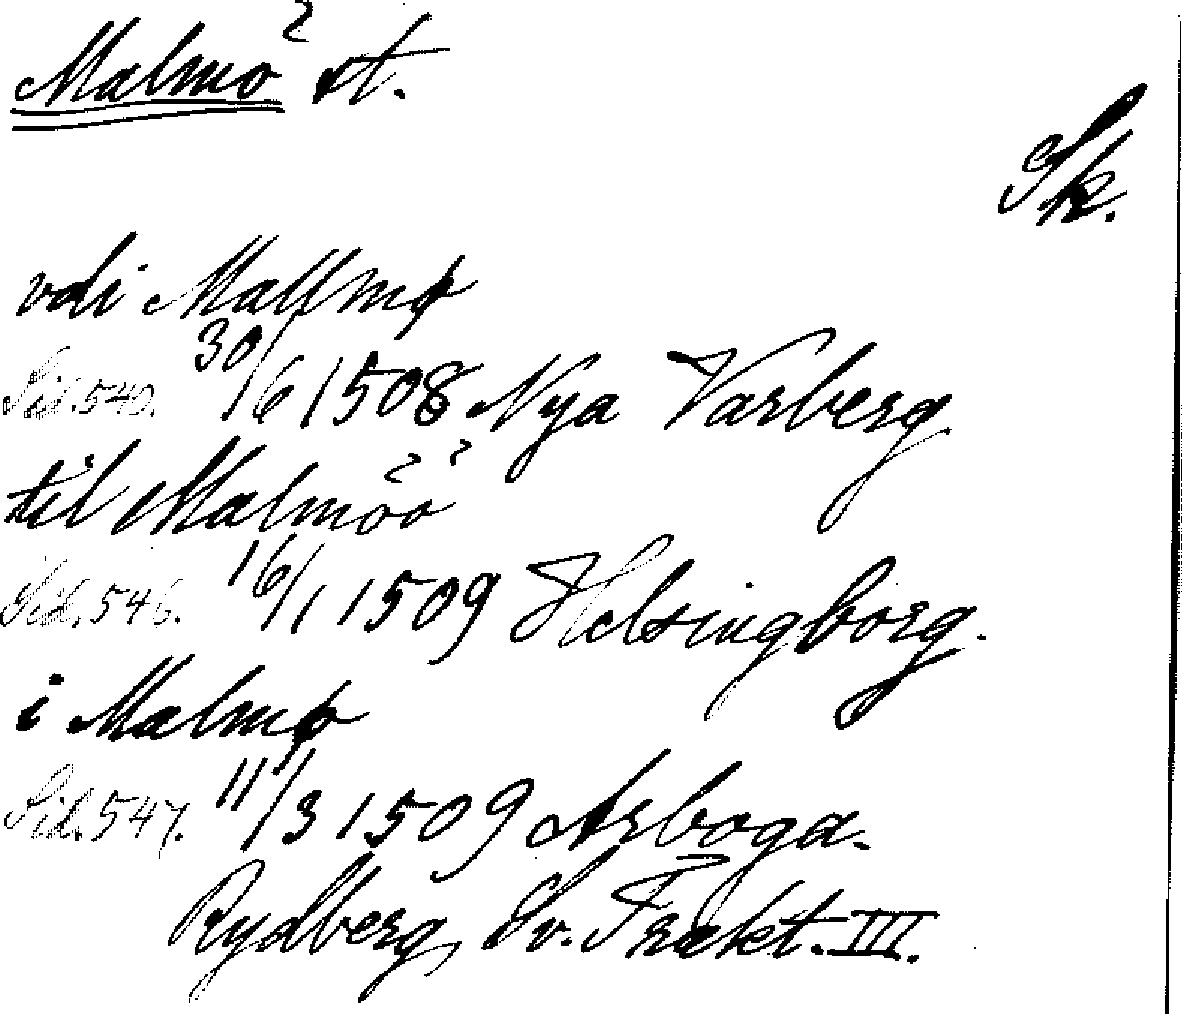 Malmö st.
Sk.
vdi Mallmø
Sid. 540. 30/6 1508 Nya Varberg
til Malmöö
Sid. 546. 16/1 1509 Helsingborg.
i Malmø
Sid. 547. 11/3 1509 Arboga.
Rydberg, Sv. Trakt. III.